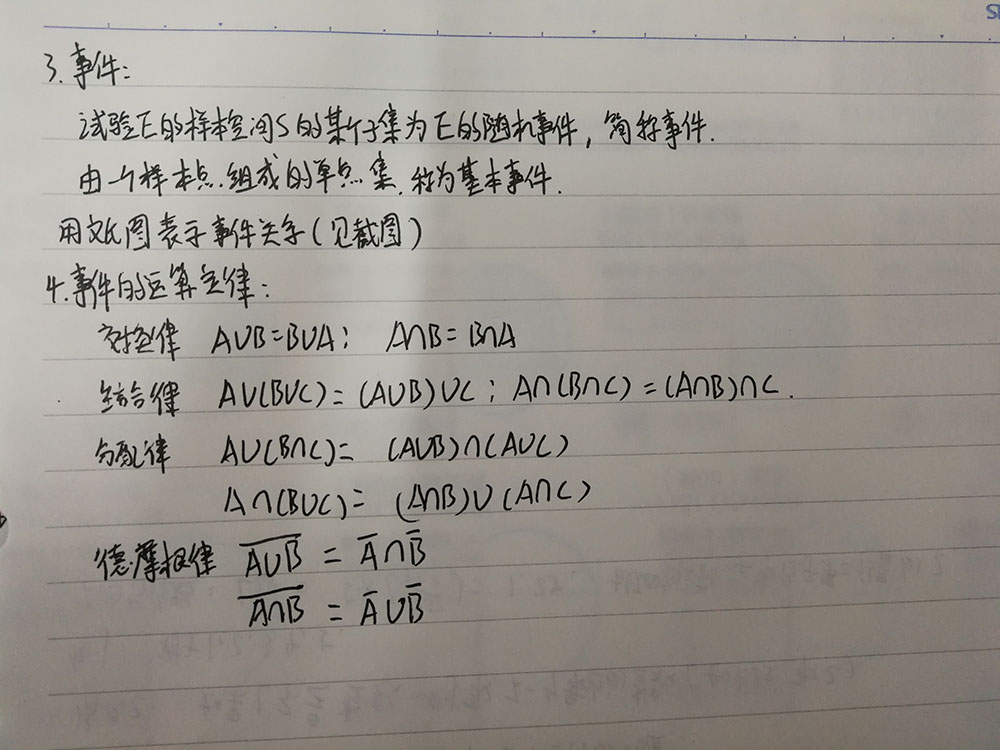 3. 事件：
试验E的样本空间S的某个子集为E的随机事件，简称事件.
由一个样本点组成的单点集.称为基本事件.
用文氏图表示事件关系(见截图)
4.事件的运算定律：
交换律 A∪B=B∪A； A∩B=B∩A
结合律 A∪(B∪C)=(A∪B)∪C；A∩(B∩C)=(A∩B)∩C.
分配律 A∪(B∩C)= (A∪B)∩(A∪C)
A∩(B∪C)= (A∩B)∪(A∩C)
德.摩根律 A̅∪̅B̅ = A̅∩B̅
A̅∩̅B̅ = A̅∪B̅